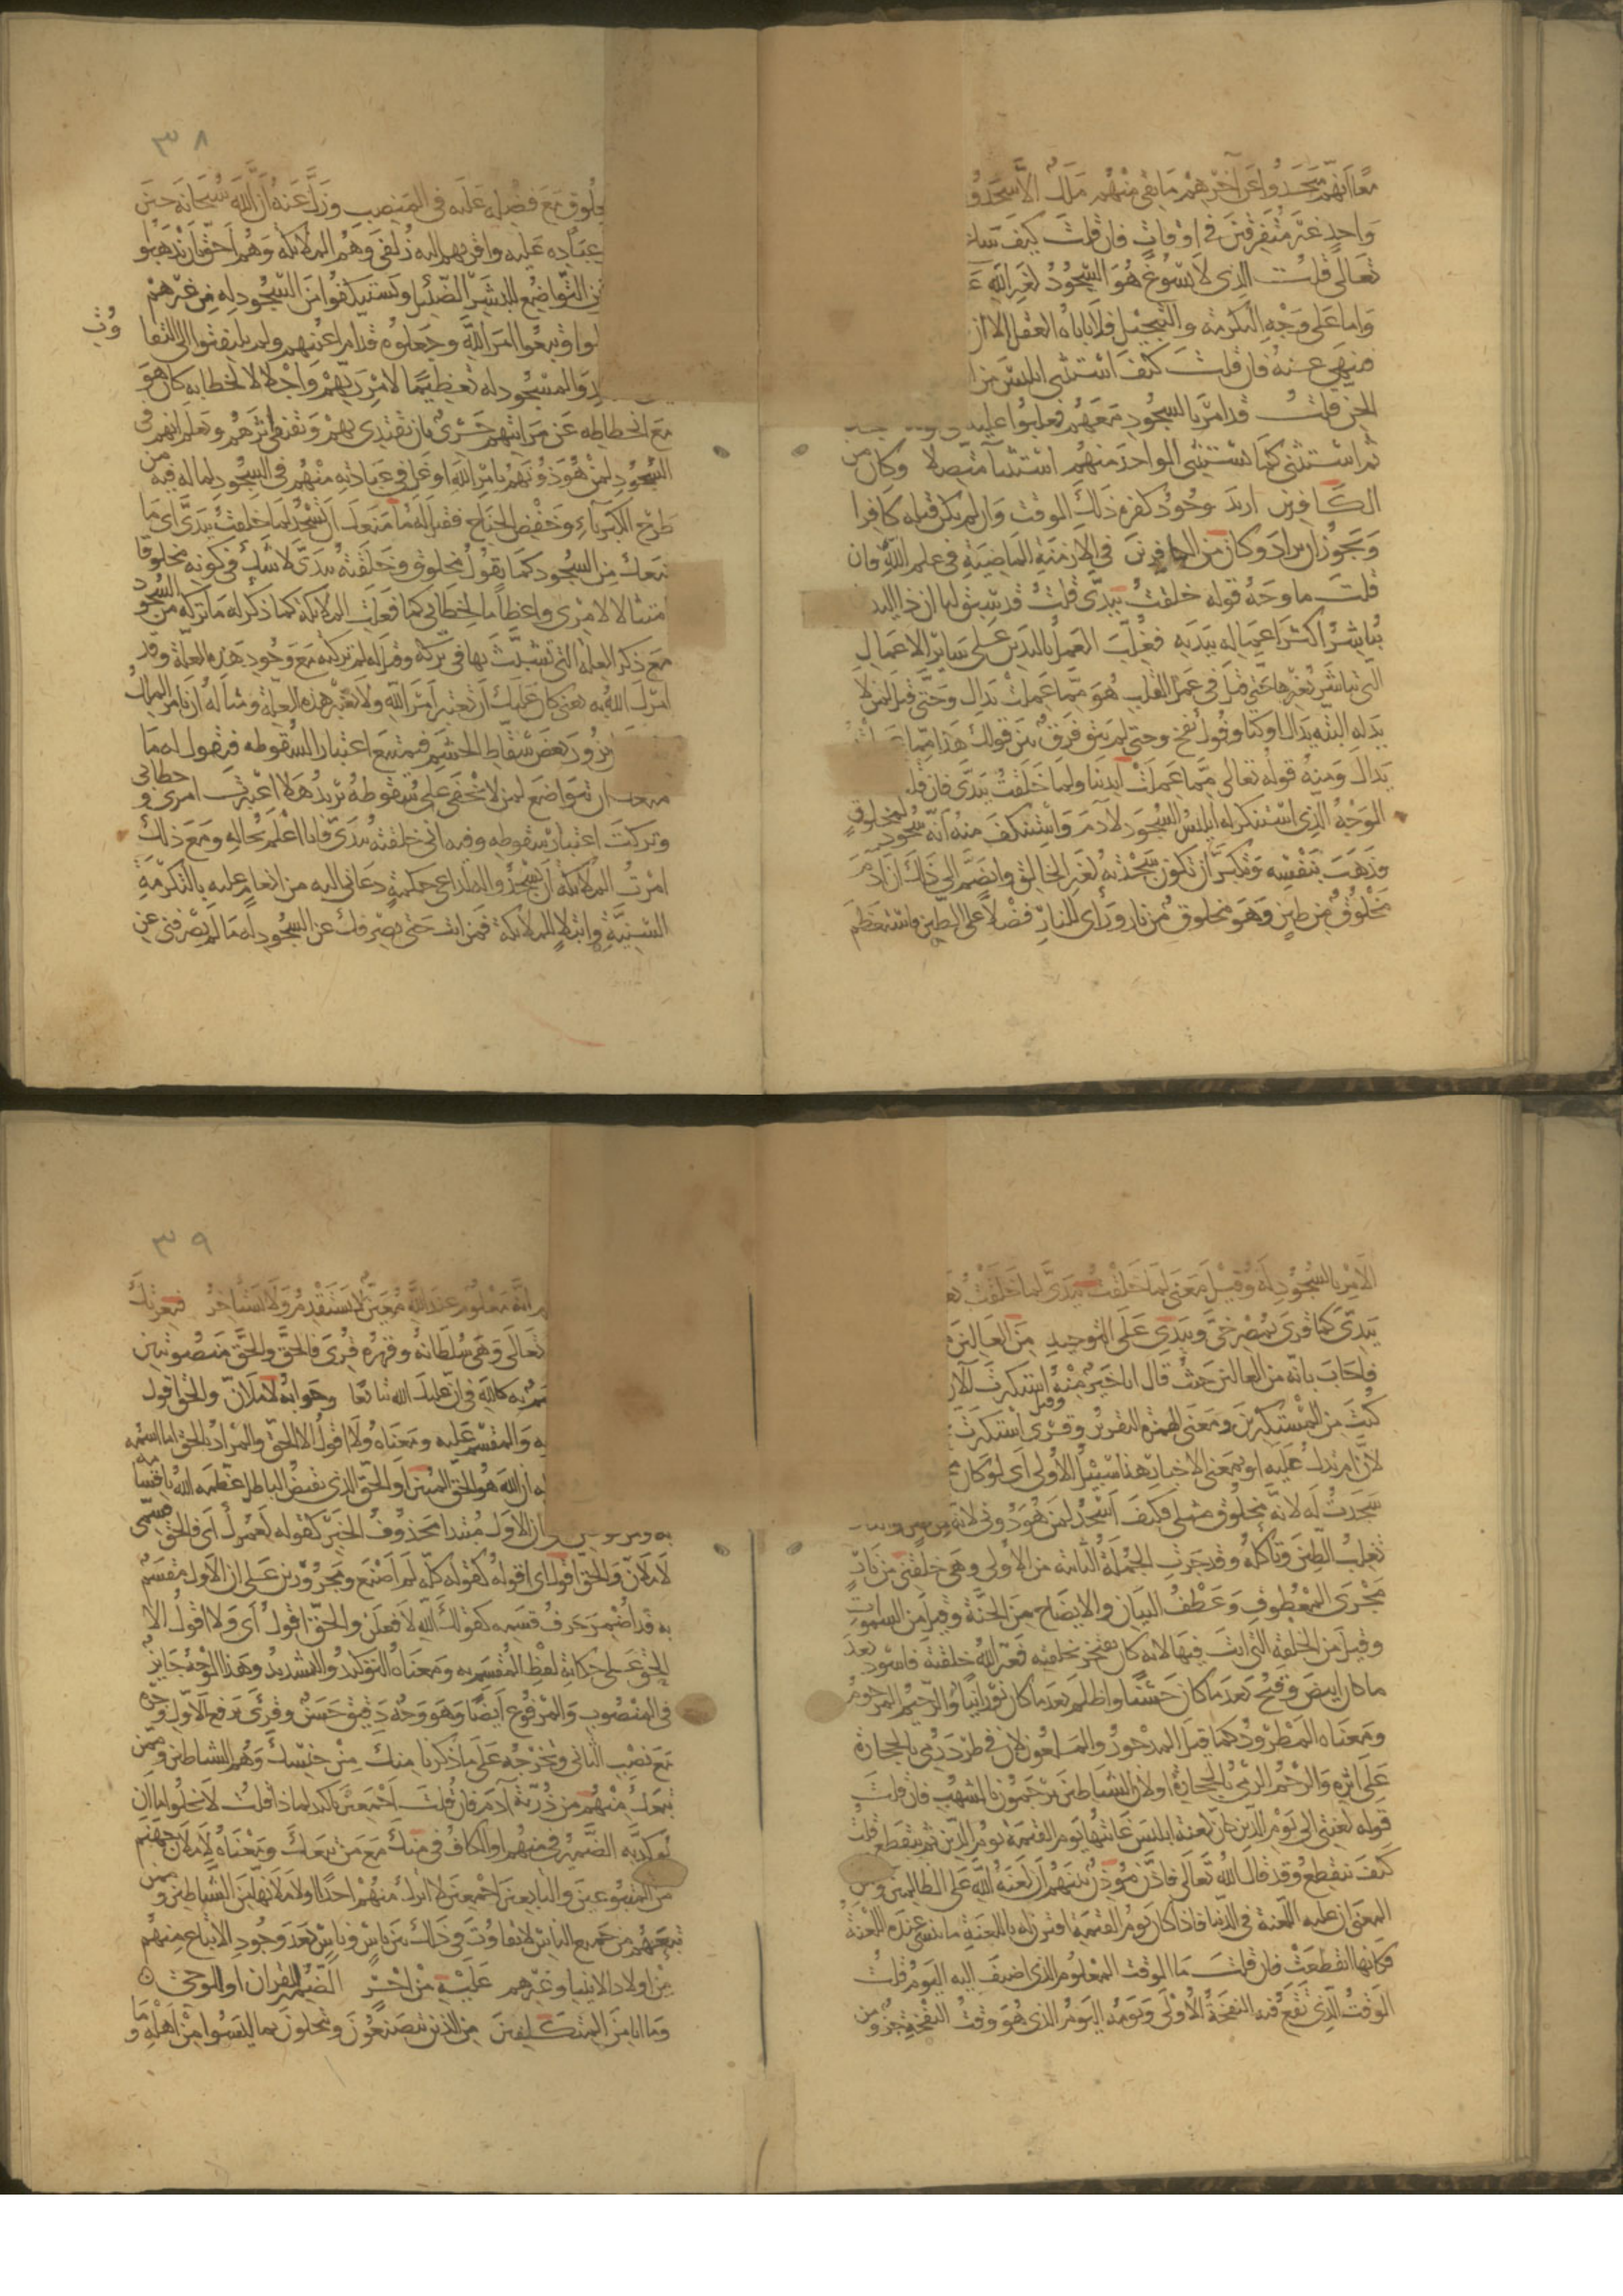 معا انهم سجدوا عن آخرهم ما بقي منهم ملك الا سجدو
واحد غير متفرقين في اوقات فان قلت كيف ساغ
تعالى قلت الذي لا يسوغ هو السجود لغير الله
واما على وجه التكرمة والتبجيل فلا ياباه العقل الا ان
فينهى عنه فان قلت كيف استثنى ابليس من
الجن قلت قد امر بالسجود معهم فغلبوا عليه
ثم استثنى كما يستثنى الواحد منهم استثناء متصلا وكان من
الكافرين اريد وجود كفره ذلك الوقت وان لم يكن قبله كافرا
ويجوز ان يراد وكان من الكافرين في الازمنة الماضية في علم الله فان
قلت ما وجه قوله خلقت بيدي قلت قد سبق لنا ان ذا اليد
يباشر اكثر اعماله بيديه فغلب العمل باليدين على سائر الاعمال
التي تباشر بغيرها حتى قيل في عمل القلب هو مما عملت يداك وحتى قيل لمن لا
يدي له يداك اوكتا وفوك نفخ وحتى لم يبق فرق بين قولك هذا مما عملته
يداك ومنه قوله تعالى مما عملت ايدينا ولما خلقت بيدي فان قلت
الوجه الذي استنكر له ابليس السجود لآدم واستنكف منه انه سجود لمخلوق
فذهب بنفسه وتكبر ان تكون سجدته لغير الخالق وانضم الى ذلك ان آدم
مخلوق من طين وهو مخلوق من نار وراى للنار فضلا على الطين فاستعظم
٣٨
مخلوق مع فضله عليه في المنصب وزل عنه ان الله سبحانه حين
عباده عليه واقربهم اليه زلفى وهم الملائكة وهم احق ان يذهبوا
عن التواضع للبشر الضئيل ويستنكفوا من السجود له من غيرهم
وتبعوا امر الله وجعلوه قدام اعينهم ولم يلتفتوا الى التفا
وت
والمسجود له تعظيما لامر ربهم واجلالا لخطابه كان هو
مع انحطاطه عن مراتبهم حري بان يقتدي بهم ويقتفي اثرهم ويعلم انهم في
السجود لمن هو دونهم بامر الله اوغل في عبادته منهم في السجود له لما فيه من
طرح الكبرياء وخفض الجناح فقيل له ما منعك ان تسجد لما خلقت بيدي اي ما
منعك من السجود كما تقول لمخلوق وخلقته بيدي لا شك في كونه مخلوقا
امتثالا لامري واعظاما لخطابي كما فعلت الملائكة كما ذكر له ما تركه من السجود
مع ذكر العلة التي تشبث بها في تركه وقيل له لم تركته مع وجود هذه العلة وقد
امرك الله به يعني كان عليك ان تعتبر امر الله ولا تعتبر هذه العلة ومثاله ان يامر الملك
يزور بعض سقاط الحشم فيمتنع اعتبارا لسقوطه فيقول له ما
منعك ان تتواضع لمن لا يخفى علي سقوطه يريد هلا اعتبرت امري وخطابي
وتركت اعتبار سقوطه وفيه اني خلقته بيدي فانا اعلم بحاله ومع ذلك
امرت الملائكة ان يسجدوا له لداعي حكمة دعاني اليه من انعام عليه بالتكرمة
السنية وابتلاء للملائكة فمن انت حتى يصرفك عن السجود له ما لم يصرفني عن
الامر بالسجود له وقيل معنى لما خلقت بيدي لما خلقت
بيدي كما قرئ بمصرخي وبيدي على التوحيد من العالين
فاجاب بانه من العالين حيث قال انا خير منه وقيل استكبرت الآن
كنت من المستكبرين ومعنى الهمزة التقرير وقرئ استكبرت
لان ام تدل عليه او بمعنى الاخبار هذا سبيل الاولى اي لو كان
سجدت له لانه مخلوق مثلي فكيف اسجد لمن هو دوني لانه من طين والنار
تغلب الطين وتاكله وقد جرت الجملة الثانية من الاولى وهي خلقتني من نار
مجرى المعطوف وعطف البيان والايضاح من الجنة وقيل من السموات
وقيل من الخلقة التي انت فيها لانه كان يفتخر بخلقته فغير الله خلقته فاسود بعد
ما كان ابيض وقبح بعد ما كان حسنا واظلم بعد ما كان نورانيا والرجيم المرجوم
ومعناه المطرود كما قيل المدحور والملعون لان من طرد رمي بالحجارة
على اثره والرجم الرمي بالحجارة او لان الشياطين يرجمون بالشهب فان قلت
قوله لعنتي الى يوم الدين كان لعنة ابليس غايتها يوم القيمة يوم الدين ثم تنقطع قلت
كيف تنقطع وقد قال الله تعالى فاذن مؤذن بينهم ان لعنة الله على الظالمين ولكن
المعنى ان عليه اللعنة في الدنيا فاذا كان يوم القيمة اقترن له باللعنة ما ينسى عنده اللعنة
فكانها انقطعت فان قلت ما الوقت المعلوم الذي اضيف اليه اليوم قلت
الوقت الذي تقع فيه النفخة الاولى ويومه اليوم الذي هو وقت النفخة جزو من
٣٩
انه معلوم عند الله معين لا يستقدم ولا يستاخر فبعزتك
تعالى وهي سلطانه وقهره قرئ فالحق والحق منصوبين
به كالله في ان عليك الله تبايعا وجوابه لاملان والحق اقول
به والمقسم عليه ومعناه ولا اقول الا الحق والمراد بالحق اما اسمه
ان الله هو الحق المبين او الحق الذي نقيض الباطل عظمه الله باقسامه
به ان الاول مبتدا محذوف الخبر كقوله لعمرك اي فالحق قسمي
لاملان والحق اقول اي اقوله كقوله كله لم اصنع ومجرورين على ان الاول مقسم
به قد اضمر حرف قسمه كقولك الله لافعلن والحق اقول اي ولا اقول الا
الحق على حكاية لفظ المقسم به ومعناه التوكيد والتشديد وهذا الوجه جايز
في المنصوب والمرفوع ايضا وهو وجه دقيق حسن وقرئ برفع الاول وجره
مع نصب الثاني وتخرجه على ما ذكرنا منك من جنسك وهم الشياطين وممن
تبعك منهم من ذرية آدم فان قلت اجمعين تاكيد لما ذا قلت لا يخلوا اما ان
يؤكد به الضمير في منهم او الكاف في منك مع من تبعك ومعناه لاملان جهنم
من المتبوعين والتابعين اجمعين لا اترك منهم احدا او لاملانها من الشياطين وممن
تبعهم من جميع الناس لا تفاوت في ذلك بين ناس وناس بعد وجود الاتباع منهم
من اولاد الانبيا وغيرهم عليه من اجر الضمير للقران او للوحي
وما انا من المتكلفين من الذين يتصنعون ويتحلون بما ليسوا من اهله وما